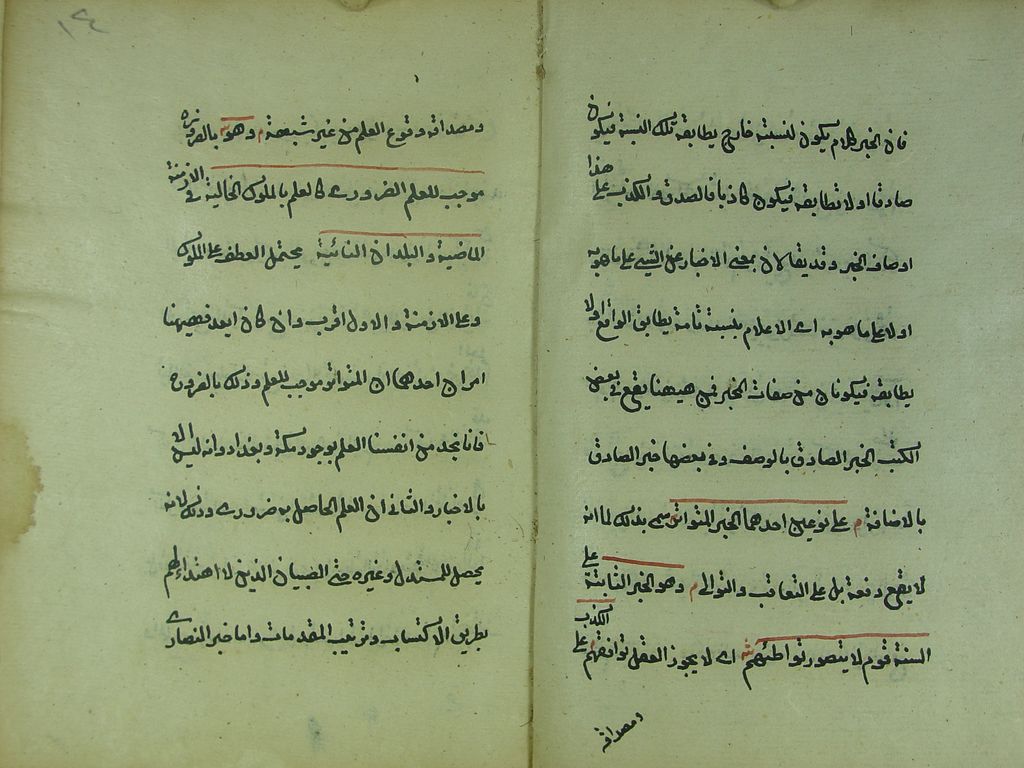 فان الخبر كلام يكون لنسبته خارج يطابقه تلك النسبة فيكون
صادقا او لا تطابقه فيكون كاذبا فالصدق والكذب على هذا
اوصاف الخبر وقد يقالان بمعنى الاخبار عن الشيى على ما هو به
اولا على ما هو به اى الاعلام بنسبة تامة يطابق الواقع اولا
يطابقه فيكونان من صفات المخبر فمن هيهنا يقع فى بعض
الكتب الخبر الصادق بالوصف وفى بعضها خبر الصادق
بالاضافة م على نوعين احدهما الخبر المتواتر سمى بذلك لما انه
لا يقع دفعة بل على التعاقب والتوالى م وهو الخبر الثابتة على
السنة قوم لا يتصور تواطئهم ش اى لا يجوز العقل توافقهم على الكذب
ومصداقه
١٤
ومصداقه وقوع العلم من غير شبهة م وهو بالضرورة
موجب للعلم الضرورى كالعلم بالملوك الخالية فى الازمنة
الماضية والبلدان النائية يحتمل العطف على الملوك
وعلى الازمنة والاول اقرب وان كان ابعد فهيهنا
امران احدهما ان المتواتر موجب للعلم وذلك بالضرورة
فانا نجد من انفسنا العلم بوجود مكة وبغداد وانه ليس الا
بالاخبار والثانى ان العلم الحاصل به ضرورى وذلك لانه
يحصل للمستدل وغيره حتى الصبيان الذين لا اهتداء لهم
بطريق الاكتساب وترتيب المقدمات واما خبر النصارى